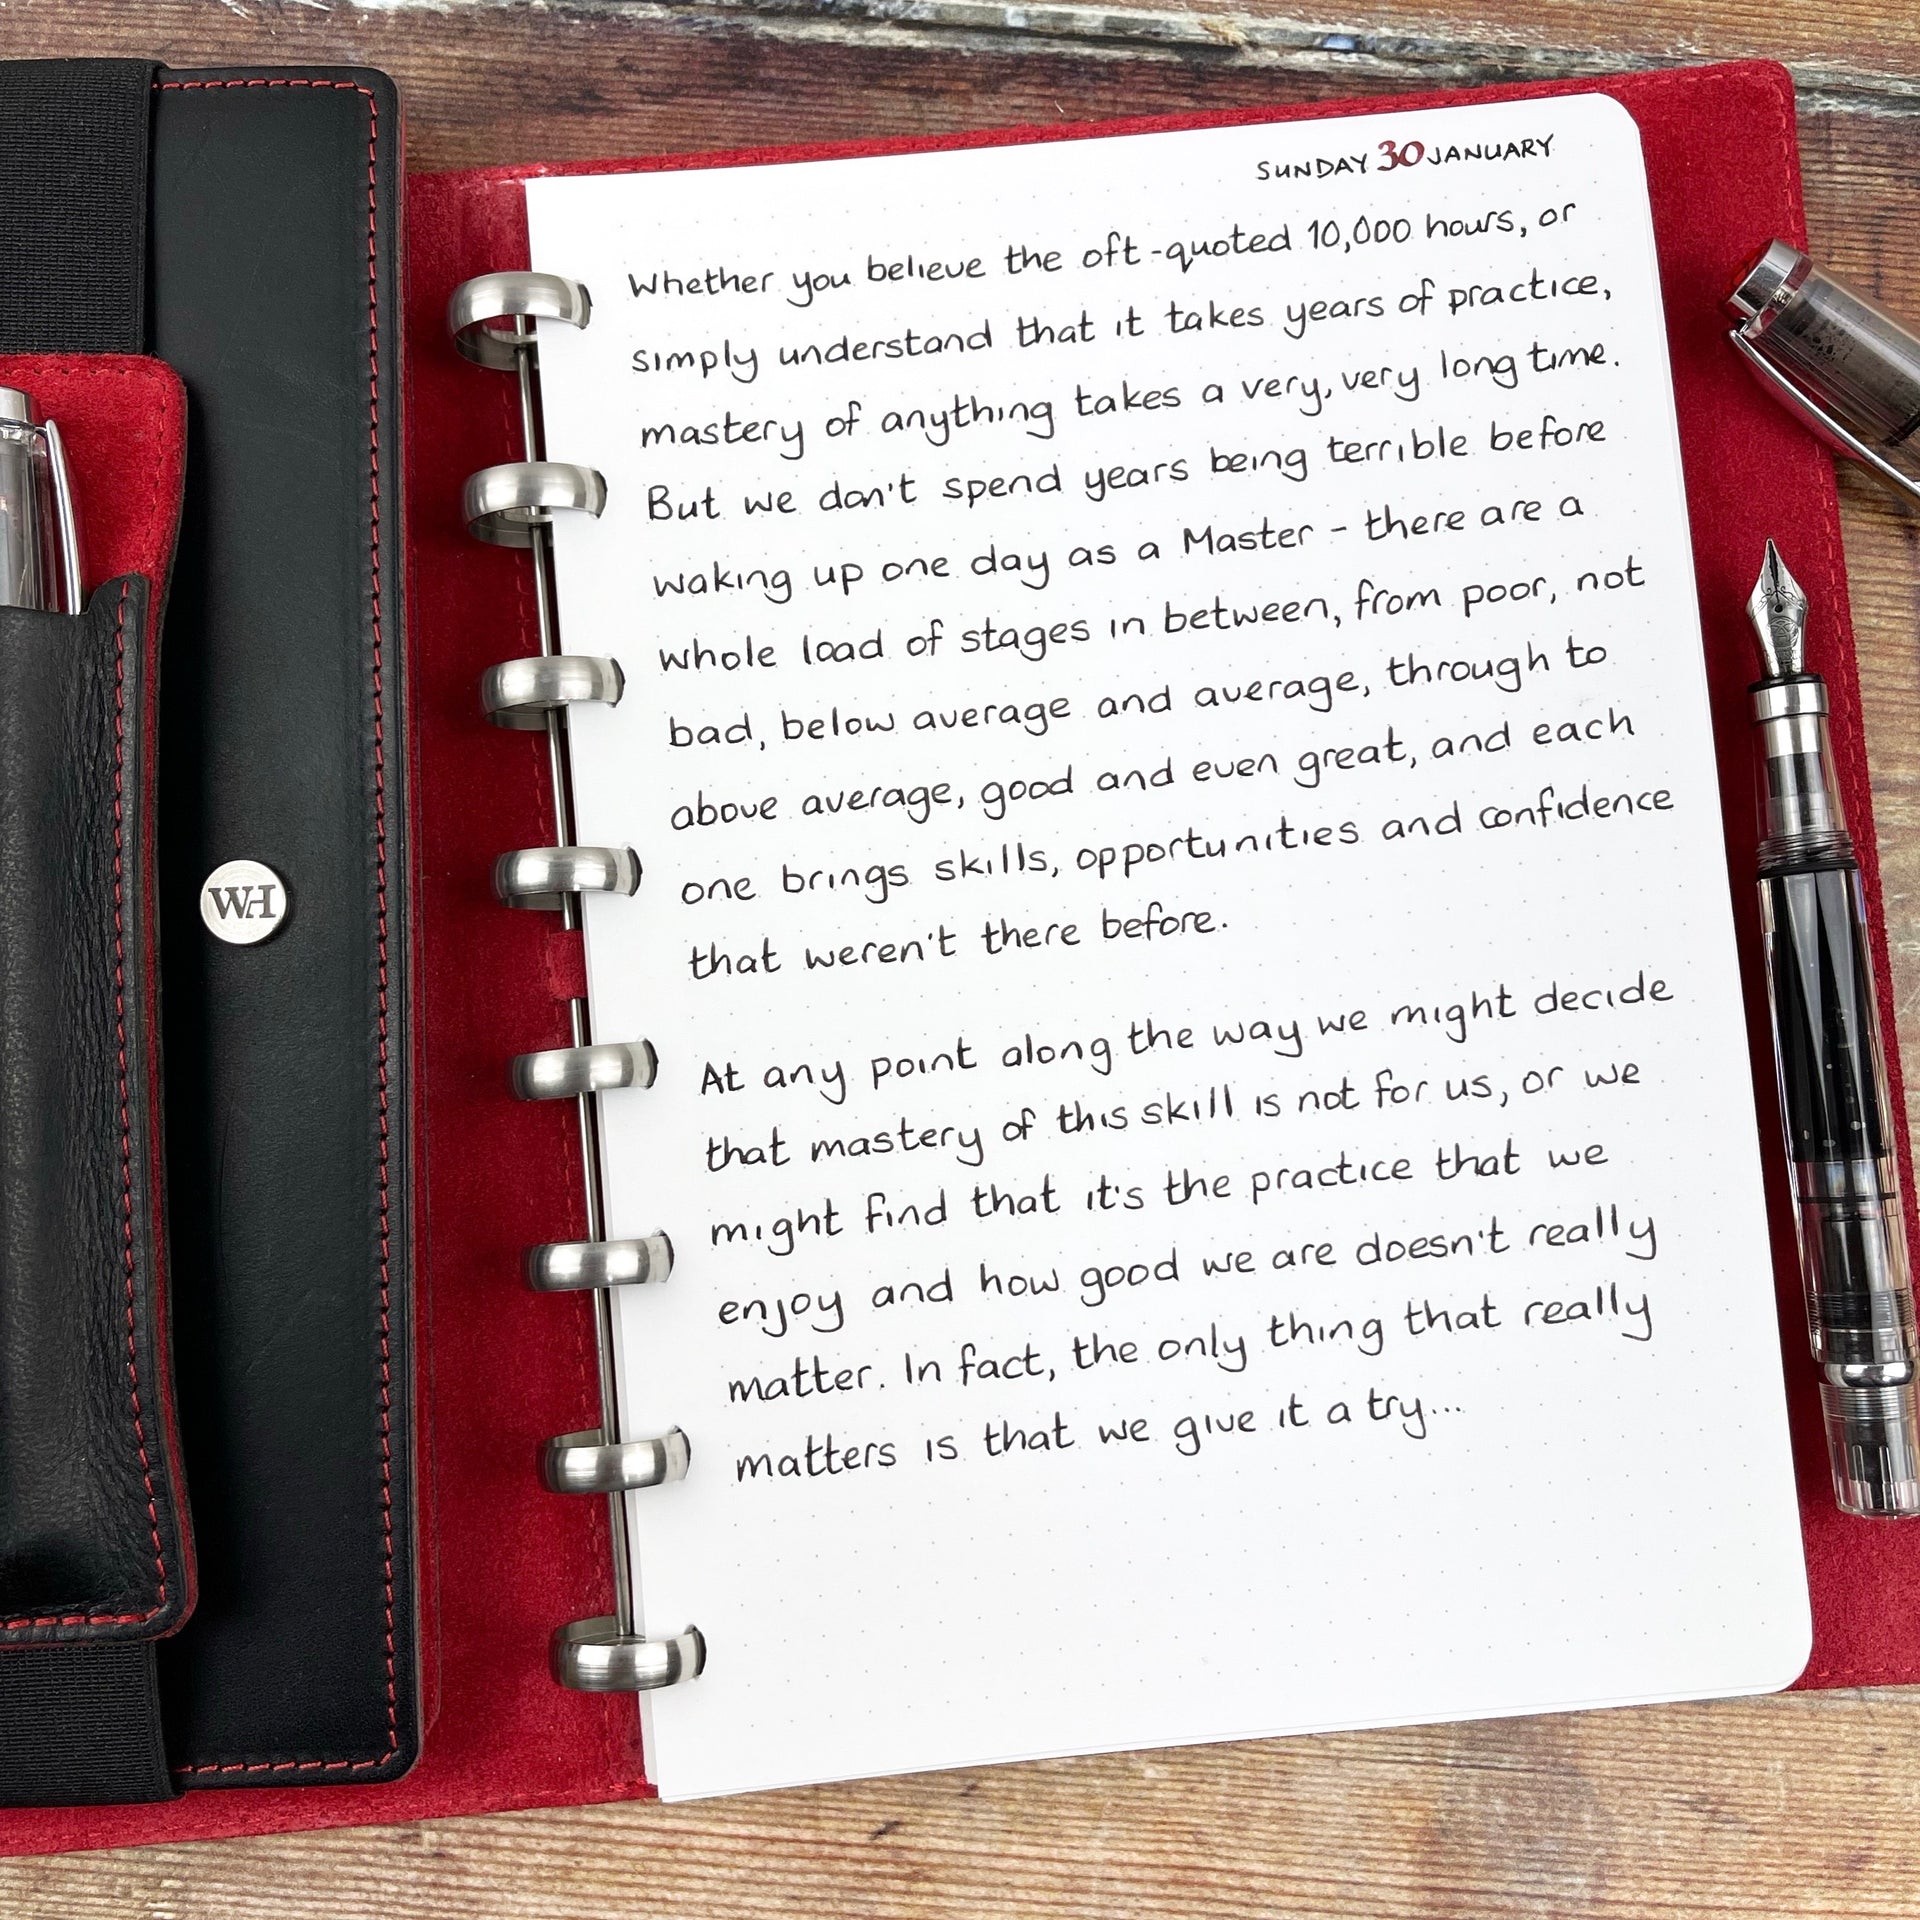 SUNDAY 30 JANUARY
Whether you believe the oft-quoted 10,000 hours, or
simply understand that it takes years of practice,
mastery of anything takes a very, very long time.
But we don't spend years being terrible before
waking up one day as a Master - there are a
whole load of stages in between, from poor, not
bad, below average and average, through to
above average, good and even great, and each
one brings skills, opportunities and confidence
that weren't there before.
At any point along the way we might decide
that mastery of this skill is not for us, or we
might find that it's the practice that we
enjoy and how good we are doesn't really
matter. In fact, the only thing that really
matters is that we give it a try...
WH